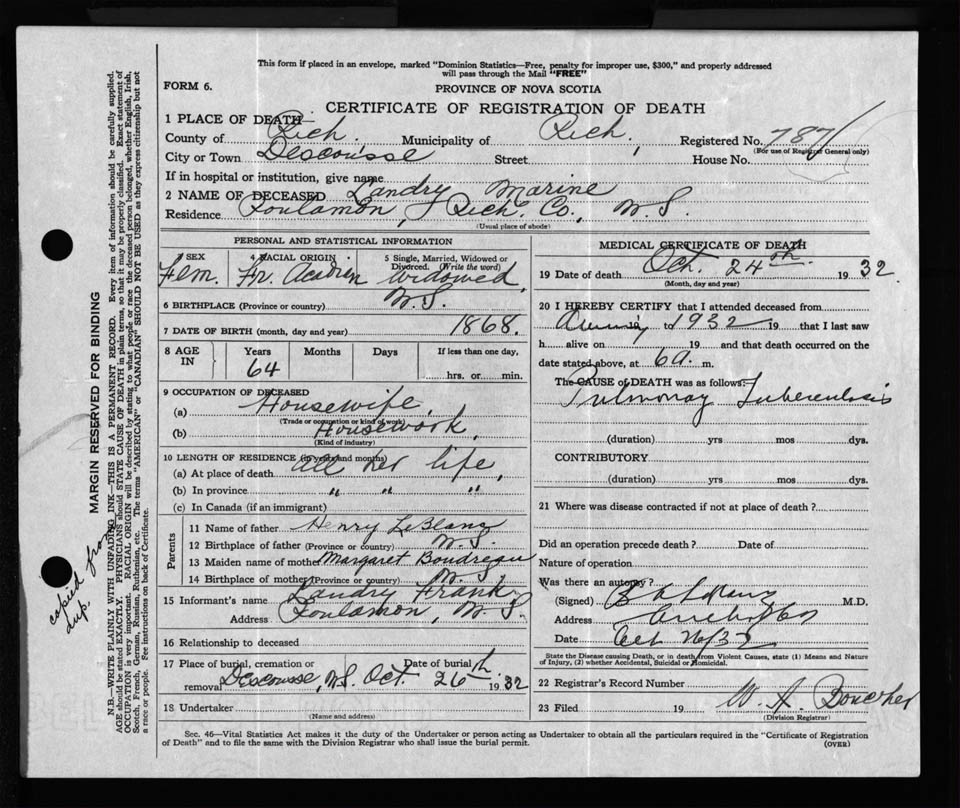 This form if placed in an envelope, marked "Dominion Statistics—Free, penalty for improper use, $300," and properly addressed
will pass through the Mail "FREE"
FORM 6.
PROVINCE OF NOVA SCOTIA
CERTIFICATE OF REGISTRATION OF DEATH
1 PLACE OF DEATH
County of Rich. Municipality of Rich. Registered No. 787
(For use of Registrar General only)
City or Town Descousse Street House No.
If in hospital or institution, give name
2 NAME OF DECEASED Landry Marine
Residence Poulamon, Rich. Co., N.S.
(Usual place of abode)
PERSONAL AND STATISTICAL INFORMATION
3 SEX 4 RACIAL ORIGIN 5 Single, Married, Widowed or
Divorced. (Write the word)
Fem. Fr. Acadien Widowed,
6 BIRTHPLACE (Province or country) N.S.
7 DATE OF BIRTH (month, day and year) 1868.
8 AGE IN Years Months Days If less than one day,
64 hrs. or min.
9 OCCUPATION OF DECEASED
(a) Housewife,
(Trade or occupation or kind of work)
(b) Housework,
(Kind of industry)
10 LENGTH OF RESIDENCE (in years and months)
(a) At place of death All her life,
(b) In province " " "
(c) In Canada (if an immigrant)
Parents
11 Name of father Henry LeBlanc
12 Birthplace of father (Province or country) N.S.
13 Maiden name of mother Margaret Boudreau
14 Birthplace of mother (Province or country) N.S.
15 Informant's name Landry Frank
Address Poulamon, N.S.
16 Relationship to deceased
17 Place of burial, cremation or Date of burial
removal Descousse, N.S. Oct. 26th 1932
18 Undertaker
(Name and address)
MEDICAL CERTIFICATE OF DEATH
19 Date of death Oct. 24th 1932
(Month, day and year)
20 I HEREBY CERTIFY that I attended deceased from
to 1932 19 that I last saw
h alive on 19 and that death occurred on the
date stated above, at 6 a. m.
The CAUSE of DEATH was as follows:
Pulmonay Tuberculosis
(duration) yrs mos dys.
CONTRIBUTORY
(duration) yrs mos dys.
21 Where was disease contracted if not at place of death?
Did an operation precede death? Date of
Nature of operation
Was there an autopsy?
(Signed) M.D.
Address
Date Oct 26/32
State the Disease causing Death, or in death from Violent Causes, state (1) Means and Nature
of Injury, (2) whether Accidental, Suicidal or Homicidal.
22 Registrar's Record Number
23 Filed 19 W. A. Boucher
(Division Registrar)
Sec. 46—Vital Statistics Act makes it the duty of the Undertaker or person acting as Undertaker to obtain all the particulars required in the "Certificate of Registration
of Death" and to file the same with the Division Registrar who shall issue the burial permit.
(OVER)
MARGIN RESERVED FOR BINDING
N.B.—WRITE PLAINLY WITH UNFADING INK—THIS IS A PERMANENT RECORD. Every item of information should be carefully supplied.
AGE should be stated EXACTLY. PHYSICIANS should STATE CAUSE OF DEATH in plain terms, so that it may be properly classified. Exact statement of
OCCUPATION is very important. RACIAL ORIGIN will be described by stating to what people or race the deceased person belonged, whether English, Irish,
Scotch, French, German, Russian, Ruthenian, etc. The terms "AMERICAN" or "CANADIAN" SHOULD NOT BE USED as they express citizenship but not
a race or people. See instructions on back of Certificate.
copied from
dup.